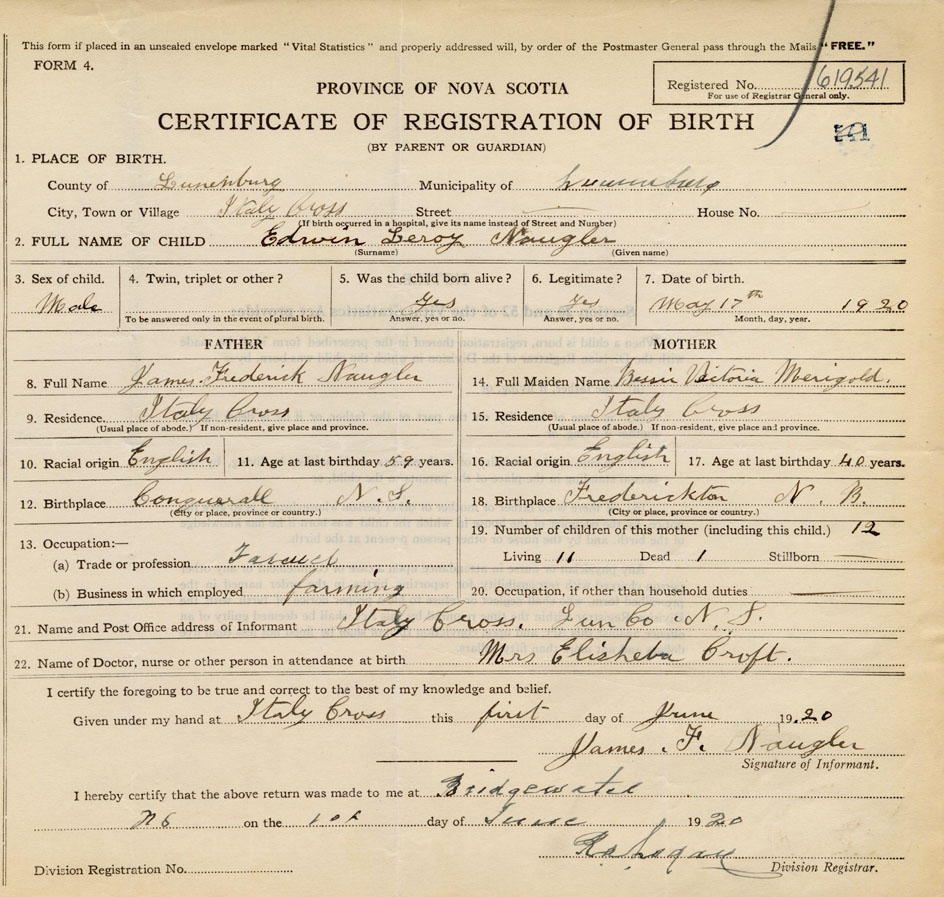 This form if placed in an unsealed envelope marked "Vital Statistics" and properly addressed will, by order of the Postmaster General pass through the Mails "FREE."
FORM 4.
Registered No. 619541
For use of Registrar General only.
PROVINCE OF NOVA SCOTIA
CERTIFICATE OF REGISTRATION OF BIRTH
541
(BY PARENT OR GUARDIAN)
1. PLACE OF BIRTH.
County of Lunenburg Municipality of Lunenburg
City, Town or Village Italy Cross Street House No.
(If birth occurred in a hospital, give its name instead of Street and Number)
2. FULL NAME OF CHILD Edwin Leroy Naugler
(Surname) (Given name)
3. Sex of child. 4. Twin, triplet or other? 5. Was the child born alive? 6. Legitimate? 7. Date of birth.
Male Yes Yes May 17th 1920
To be answered only in the event of plural birth. Answer, yes or no. Answer, yes or no. Month, day, year.
FATHER MOTHER
8. Full Name James Frederick Naugler 14. Full Maiden Name Bessie Victoria Merigold.
9. Residence Italy Cross 15. Residence Italy Cross
(Usual place of abode.) If non-resident, give place and province. (Usual place of abode.) If non-resident, give place and province.
10. Racial origin English 11. Age at last birthday 59 years. 16. Racial origin English 17. Age at last birthday 40 years.
12. Birthplace Conquerall N. S. 18. Birthplace Frederickton N. B.
(City or place, province or country.) (City or place, province or country.)
19. Number of children of this mother (including this child.) 12
13. Occupation:—
(a) Trade or profession Living 11 Dead 1 Stillborn
(b) Business in which employed farming 20. Occupation, if other than household duties
21. Name and Post Office address of Informant Italy Cross. Lun Co N. S.
22. Name of Doctor, nurse or other person in attendance at birth Mrs Elisheba Croft.
I certify the foregoing to be true and correct to the best of my knowledge and belief.
Given under my hand at Italy Cross this first day of June 19.20
James. F. Naugler
Signature of Informant.
I hereby certify that the above return was made to me at Bridgewater
NS on the 1st day of June 1920
Division Registration No. Division Registrar.